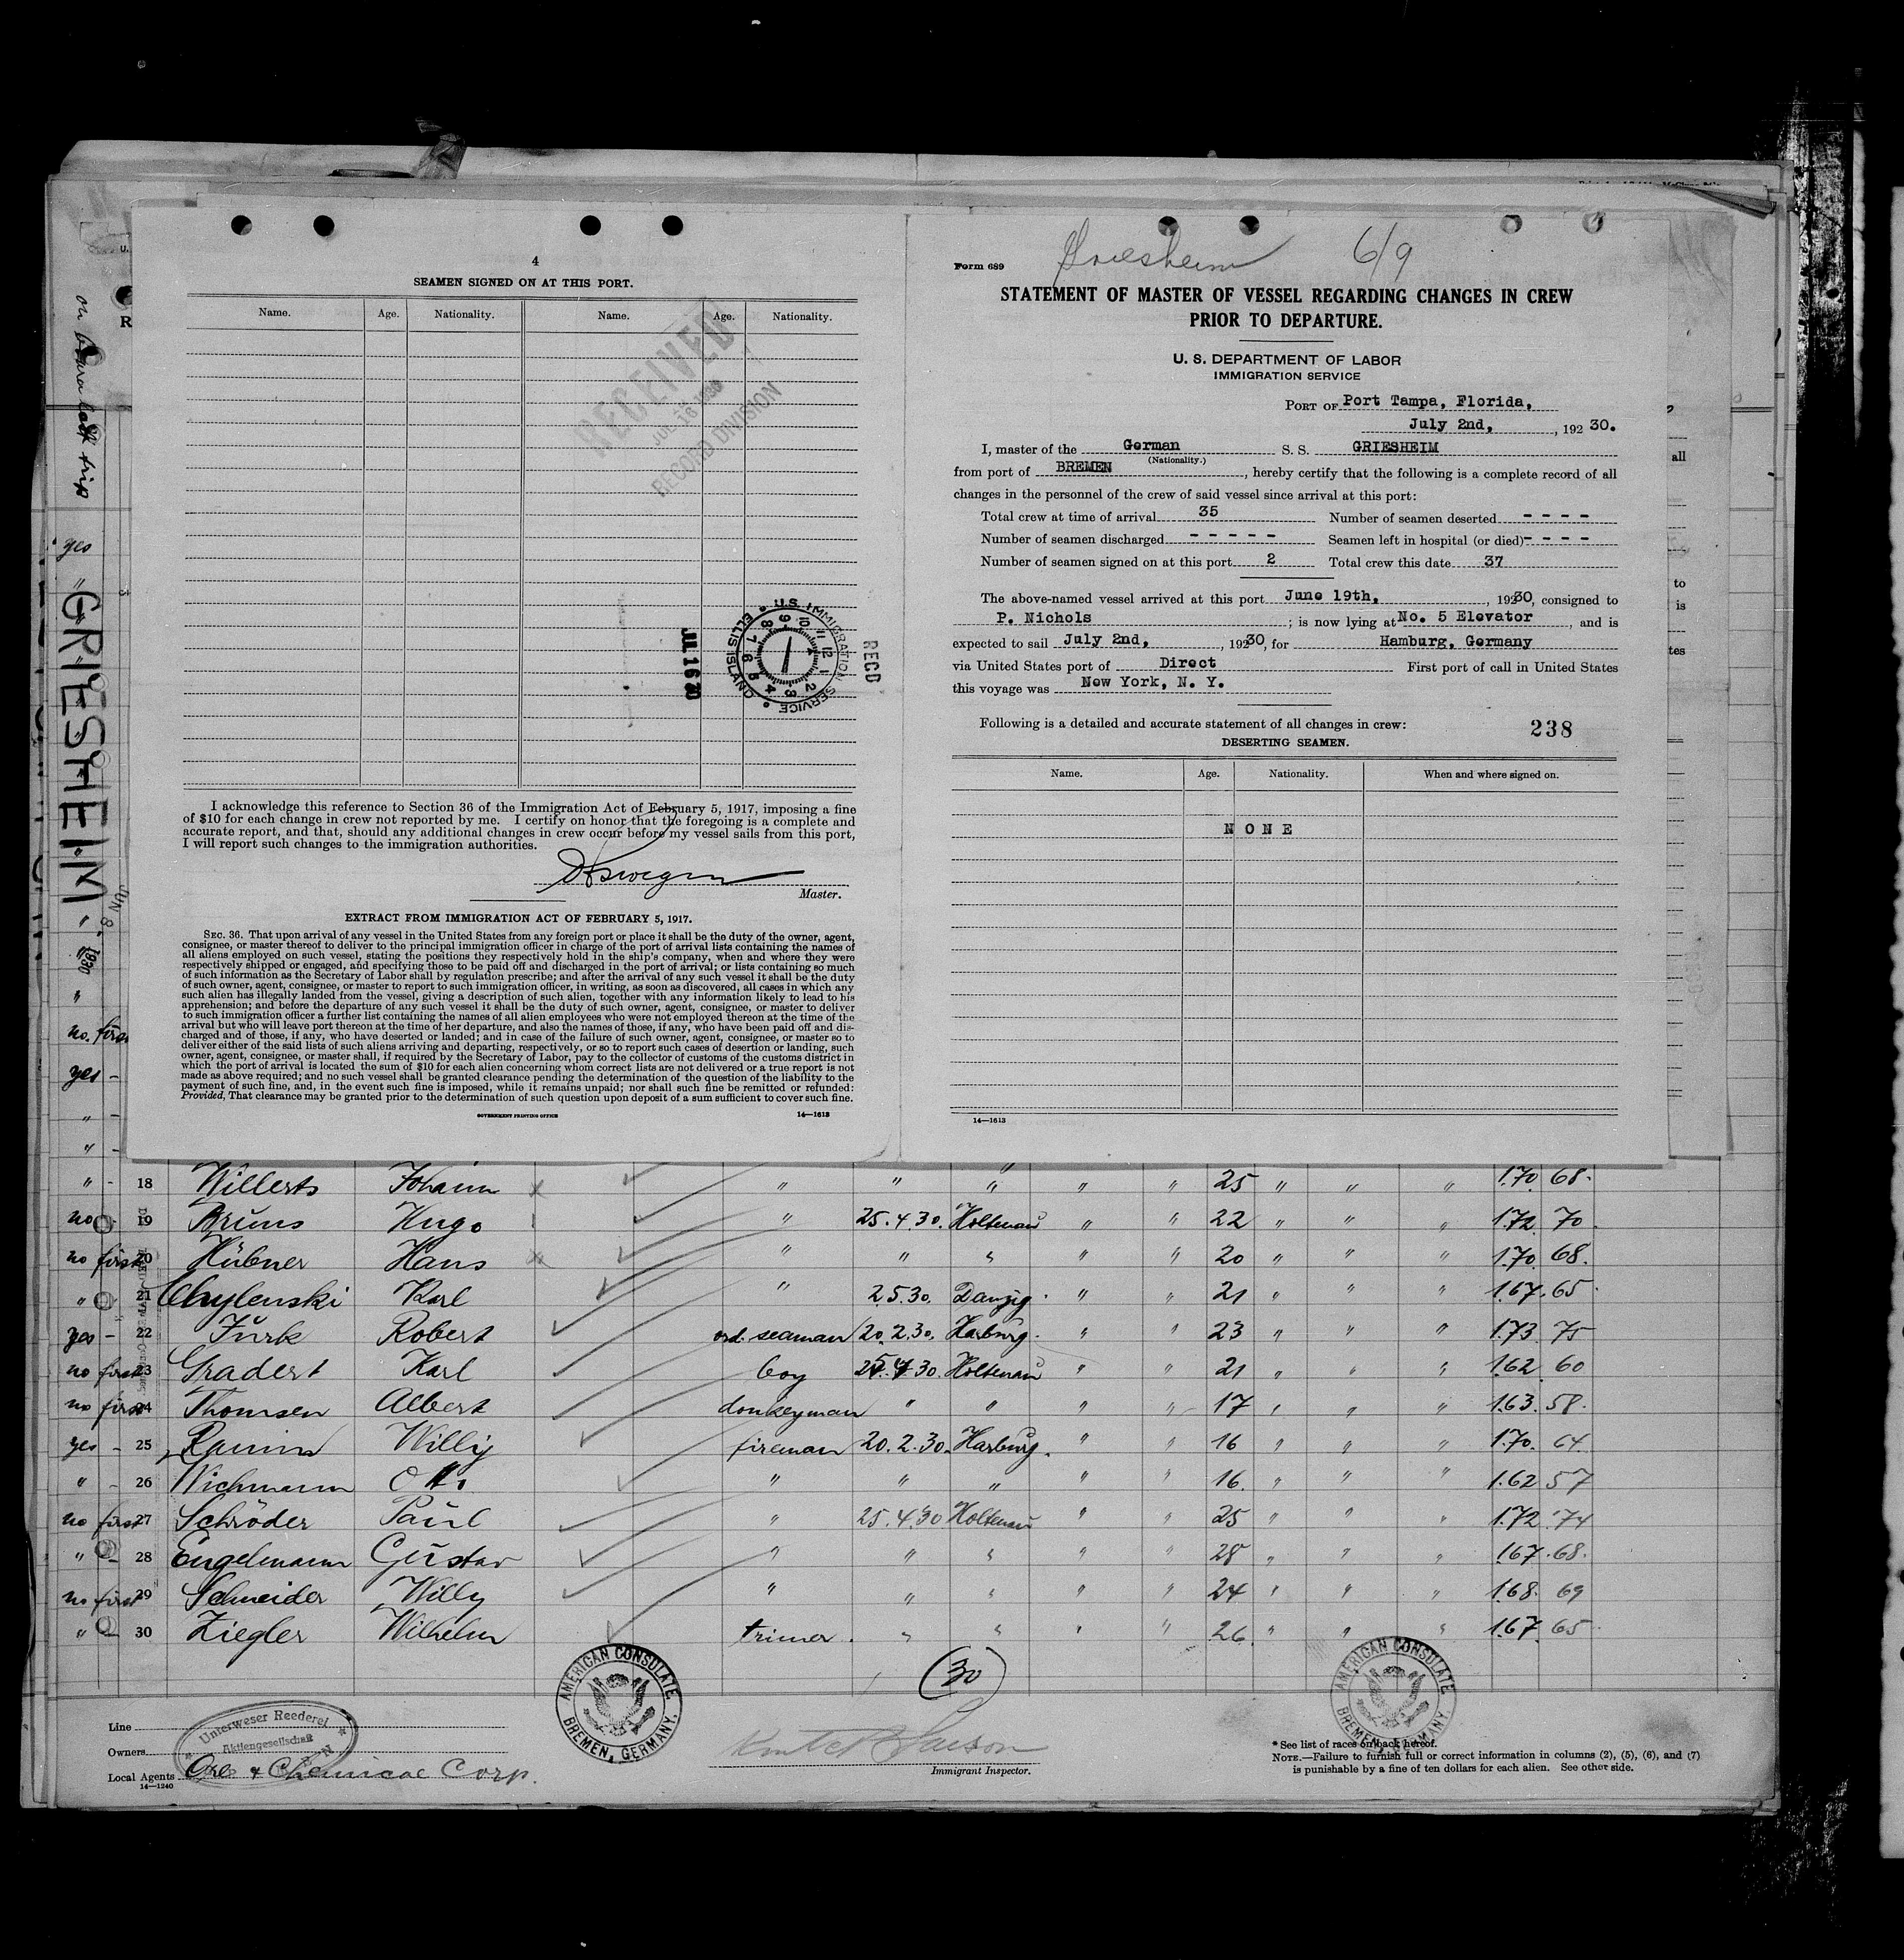 4
SEAMEN SIGNED ON AT THIS PORT.
Name. Age. Nationality. Name. Age. Nationality.
RECEIVED
JUL 16 1930
RECORD DIVISION
U.S. IMMIGRATION SERVICE
ELLIS ISLAND
JUL 16 30
RECD
I acknowledge this reference to Section 36 of the Immigration Act of February 5, 1917, imposing a fine
of $10 for each change in crew not reported by me. I certify on honor that the foregoing is a complete and
accurate report, and that, should any additional changes in crew occur before my vessel sails from this port,
I will report such changes to the immigration authorities.
Master.
EXTRACT FROM IMMIGRATION ACT OF FEBRUARY 5, 1917.
SEC. 36. That upon arrival of any vessel in the United States from any foreign port or place it shall be the duty of the owner, agent,
consignee, or master thereof to deliver to the principal immigration officer in charge of the port of arrival lists containing the names of
all aliens employed on such vessel, stating the positions they respectively hold in the ship's company, when and where they were
respectively shipped or engaged, and specifying those to be paid off and discharged in the port of arrival; or lists containing so much
of such information as the Secretary of Labor shall by regulation prescribe; and after the arrival of any such vessel it shall be the duty
of such owner, agent, consignee, or master to report to such immigration officer, in writing, as soon as discovered, all cases in which any
such alien has illegally landed from the vessel, giving a description of such alien, together with any information likely to lead to his
apprehension; and before the departure of any such vessel it shall be the duty of such owner, agent, consignee, or master to deliver
to such immigration officer a further list containing the names of all alien employees who were not employed thereon at the time of the
arrival but who will leave port thereon at the time of her departure, and also the names of those, if any, who have been paid off and dis-
charged and of those, if any, who have deserted or landed; and in case of the failure of such owner, agent, consignee, or master so to
deliver either of the said lists of such aliens arriving and departing, respectively, or so to report such cases of desertion or landing, such
owner, agent, consignee, or master shall, if required by the Secretary of Labor, pay to the collector of customs of the customs district in
which the port of arrival is located the sum of $10 for each alien concerning whom correct lists are not delivered or a true report is not
made as above required; and no such vessel shall be granted clearance pending the determination of the question of the liability to the
payment of such fine, and, in the event such fine is imposed, while it remains unpaid; nor shall such fine be remitted or refunded:
Provided, That clearance may be granted prior to the determination of such question upon deposit of a sum sufficient to cover such fine.
GOVERNMENT PRINTING OFFICE 14—1613
Form 689
Griesheim 6/9
STATEMENT OF MASTER OF VESSEL REGARDING CHANGES IN CREW
PRIOR TO DEPARTURE.
U. S. DEPARTMENT OF LABOR
IMMIGRATION SERVICE
PORT OF Port Tampa, Florida,
July 2nd, , 192 30.
I, master of the German S. S. GRIESHEIM
(Nationality.)
from port of BREMEN , hereby certify that the following is a complete record of all
changes in the personnel of the crew of said vessel since arrival at this port:
Total crew at time of arrival 35 Number of seamen deserted - - - -
Number of seamen discharged - - - - - Seamen left in hospital (or died) - - - -
Number of seamen signed on at this port 2 Total crew this date 37
The above-named vessel arrived at this port June 19th, , 19230, consigned to
P. Nichols ; is now lying at No. 5 Elevator , and is
expected to sail July 2nd, , 19230, for Hamburg, Germany
via United States port of Direct First port of call in United States
this voyage was New York, N. Y.
Following is a detailed and accurate statement of all changes in crew: 238
DESERTING SEAMEN.
Name. Age. Nationality. When and where signed on.
NONE
14—1613
all
to
is
tes
on board last trip
yes
" GRIESHEIM "
JUN 8 1930
"
no. first
yes -
" -
" -
" - 18 Willerts Johann x " " " " " 25 " " " 1.70 68.
no - 19 Bruns Hugo " 25.4.30. Holtenau " " 22 " " " 1.72 70.
no first 20 Hübner Hans x " " " " " 20 " " " 1.70 68.
" - 21 Chylenski Karl " 2.5.30. Danzig. " " 21 " " " 1.67. 65.
yes - 22 Jürk Robert ord. seaman 20.2.30. Harburg. " " 23 " " " 1.73. 75
no first 23 Gradert Karl boy 25.4.30. Holtenau " " 21 " " " 1.62 60
no first 24 Thomsen Albert donkeyman " " " " 17 " " " 1.63. 58.
yes - 25 Ramin Willy fireman 20.2.30. Harburg. " " 16 " " " 1.70. 64
" - 26 Wichmann Otto " " " " " 16. " " " 1.62 57
no first 27 Schröder Paul " 25.4.30 Holtenau " " 25 " " " 1.72. 74
" - 28 Engelmann Gustav " " " " " 28 " " " 1.67. 68.
no first 29 Schneider Willy " " " " " 24 " " " 1.68. 69
" - 30 Ziegler Wilhelm trimer. " " " " 26. " " " 1.67. 65.
(30)
AMERICAN CONSULATE, BREMEN, GERMANY.
AMERICAN CONSULATE, BREMEN, GERMANY.
Line
Unterweser Reederei
Aktiengesellschaft
Owners
Local Agents Ore & Chemical Corp.
14—1240
Immigrant Inspector.
* See list of races on back hereof.
NOTE.—Failure to furnish full or correct information in columns (2), (5), (6), and (7)
is punishable by a fine of ten dollars for each alien. See other side.